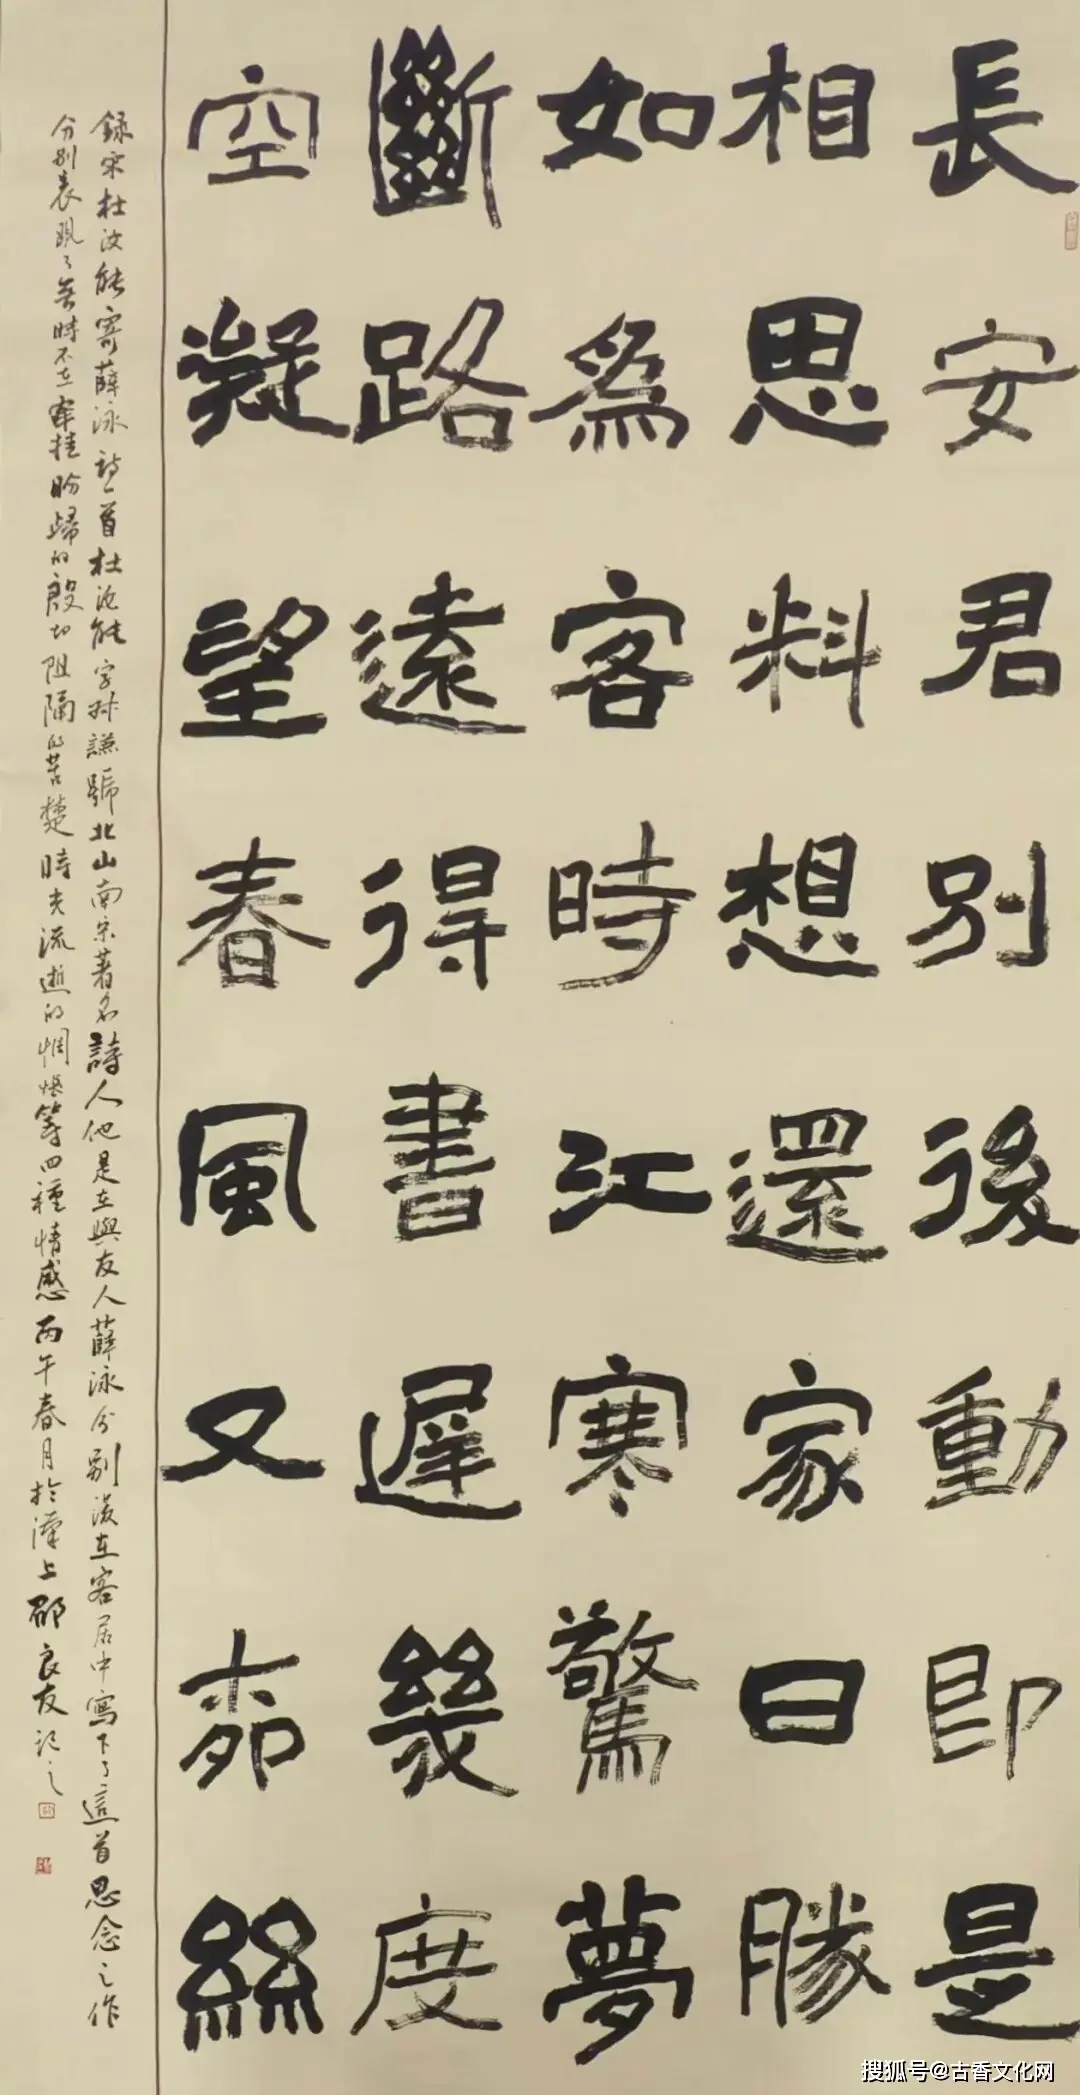 長安君別後動即是
相思料想還家日勝
如爲客時江寒驚夢
斷路遠得書遲幾度
空凝望春風又栁絲
録宋杜汝能寄薛泳詩一首杜汝能字叔謙號北山南宋著名詩人他是在與友人薛泳分别後在客居中寫下了這首思念之作
分别表現了無時不在牽挂盼歸的殷切阻隔的苦楚時光流逝的惆悵等四種情感丙午春月於漢上鄒良友記之
搜狐号@古香文化网